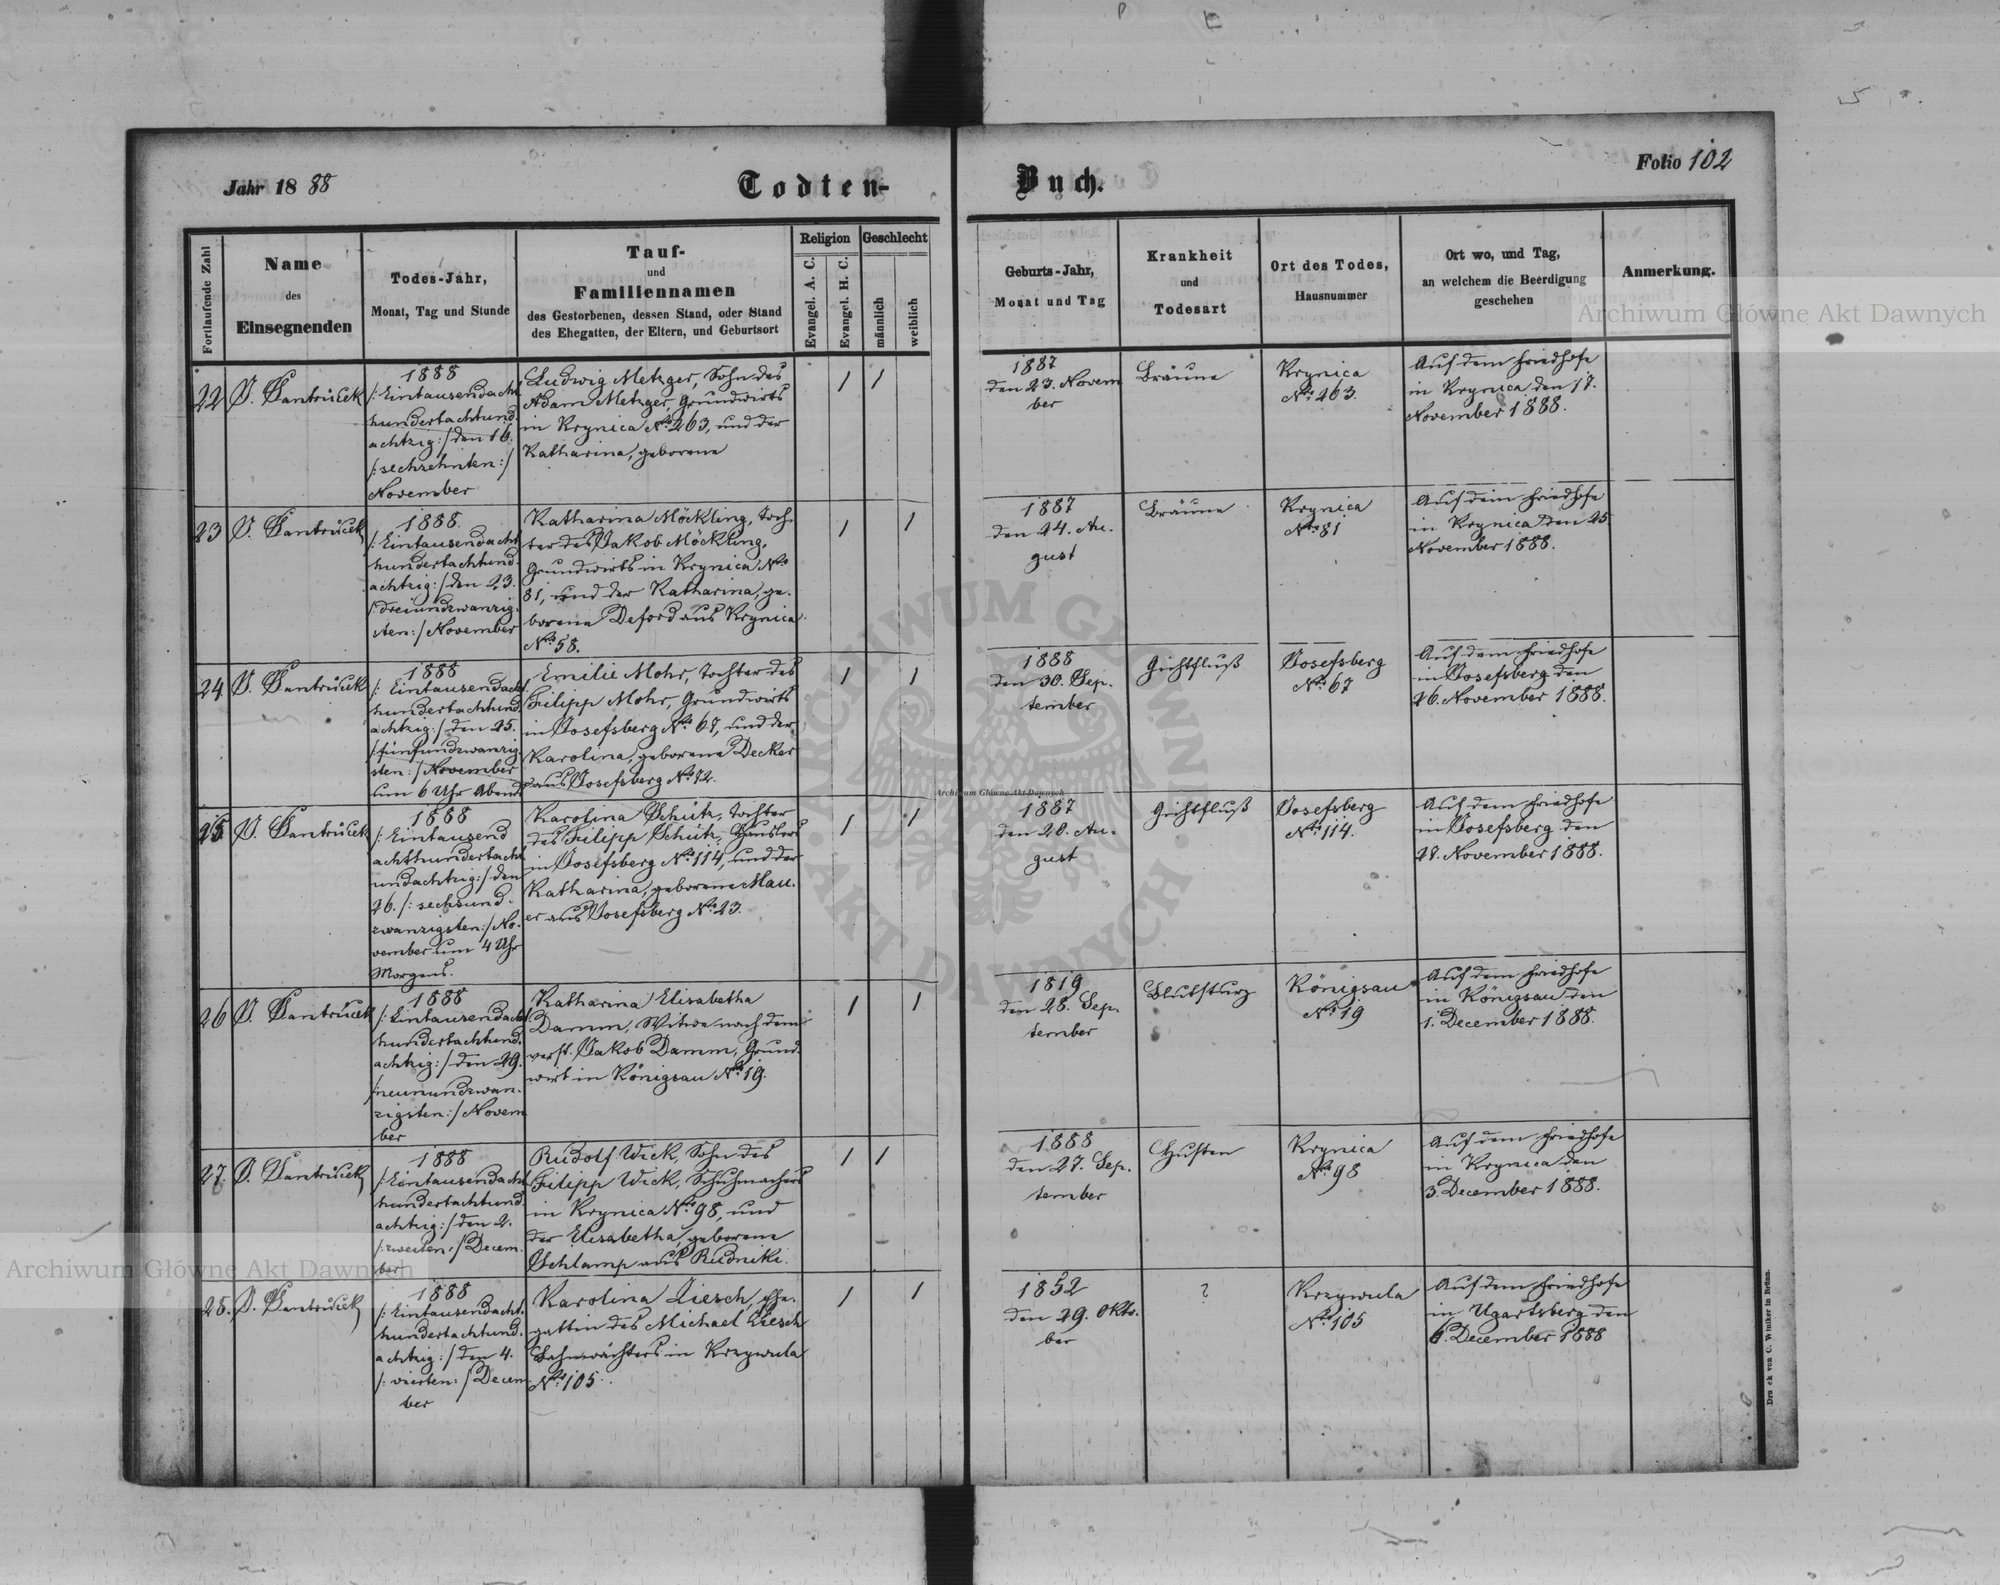 Jahr 1888
Todten-Buch.
Folio 102
Fortlaufende Zahl
Name
des
Einsegnenden
Todes-Jahr,
Monat, Tag und Stunde
Tauf-
und
Familiennamen
des Gestorbenen, dessen Stand, oder Stand
des Ehegatten, der Eltern, und Geburtsort
Religion
Evangel. A. C.
Evangel. H. C.
Geschlecht
männlich
weiblich
Geburts-Jahr,
Monat und Tag
Krankheit
und
Todesart
Ort des Todes,
Hausnummer
Ort wo, und Tag,
an welchem die Beerdigung
geschehen
Anmerkung.
22
J. Santrůček
1888
/: Eintausendacht
hundertachtund
achtzig :/ den 16.
/: sechzehnten :/
November
Ludwig Metzger, Sohn des
Adam Metzger, Grundwirts
in Krynica No 263, und der
Katharina, geborene
/
/
1887
den 23. Novem
ber
Bräune
Krynica
No 263.
Auf dem Friedhofe
in Krynica den 17.
November 1888.
23
J. Santrůček
1888.
/: Eintausendacht
hundertachtund
achtzig :/ den 23.
/: dreiundzwanzig.
sten :/ November
Katharina Möckling, Toch.
ter des Jakob Möckling,
Grundwirts in Krynica No
81, und der Katharina, ge.
borene Deford aus Krynica
No 58.
/
/
1887
den 24. Au.
gust
Bräune
Krynica
No 81
Auf dem Friedhofe
in Krynica den 25
November 1888.
24
J. Santrůček
1888
/: Eintausendacht
hundertachtund.
achtzig :/ den 25.
/: fünfundzwanzig.
sten :/ November
um 6 Uhr Abends
Emilie Mohr, Tochter des
Filipp Mohr, Grundwirts
in Josefsberg No 67, und der
Karolina, geborene Decker
aus Josefsberg No 12.
/
/
1888
den 30. Sep.
tember
Gichtfluß
Josefsberg
No 67
Auf dem Friedhofe
in Josefsberg den
26. November 1888.
25
J. Santrůček
1888
/: Eintausend
achthundertacht
undachtzig :/ den
26. /: sechsund.
zwanzigsten :/ No.
vember um 4 Uhr
Morgens.
Karolina Schütz, Tochter
des Filipp Schütz, Häuslers
in Josefsberg No 114, und der
Katharina, geborene Mau.
er aus Josefsberg No 23.
/
/
1887
den 20. Au.
gust
Gichtfluß
Josefsberg
No 114.
Auf dem Friedhofe
in Josefsberg den
28. November 1888.
26
J. Santrůček
1888
/: Eintausendacht
hundertachtund.
achtzig :/ den 29.
/: neunundzwan.
zigsten :/ Novem
ber
Katharina Elisabetha
Damm, Witwe nach dem
verst. Jakob Damm, Grund.
wirt in Königsau No 19.
/
/
1819
den 28. Sep.
tember
Blutsturz
Königsau
No 19
Auf dem Friedhofe
in Königsau den
1. December 1888.
27.
J. Santrůček
1888
/: Eintausendacht
hundertachtund.
achtzig :/ den 2.
/: zweiten :/ Decem.
ber
Rudolf Wick, Sohn des
Filipp Wick, Schuhmachers
in Krynica No 98, und
der Elisabetha, geborene
Schlamp aus Rudniki.
/
/
1888
den 27. Sep.
tember
Husten
Krynica
No 98
Auf dem Friedhofe
in Krynica den
3. December 1888.
28.
J. Santrůček
1888
/: Eintausendacht.
hundertachtund.
achtzig :/ den 4.
/: vierten :/ Decem
ber
Karolina Liesch, Ehe.
gattin des Michael Liesch
Bahnwächters in Krzywula
No 105.
/
/
1852
den 29. Okto.
ber
?
Krzywula
No 105
Auf dem Friedhofe
in Ugartsberg den
6. December 1888
Druck von C. Winiker in Brünn.
Archiwum Główne Akt Dawnych
ARCHIWUM GŁÓWNE · AKT DAWNYCH ·
Archiwum Główne Akt Dawnych
Archiwum Główne Akt Dawnych